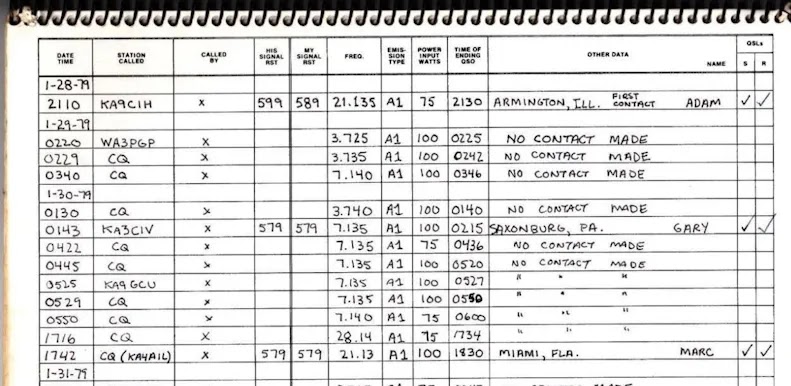 QSLs
DATE TIME STATION CALLED CALLED BY HIS SIGNAL RST MY SIGNAL RST FREQ. EMIS- SION TYPE POWER INPUT WATTS TIME OF ENDING QSO OTHER DATA NAME S R
1-28-79
2110 KA9CIH x 599 589 21.135 A1 75 2130 ARMINGTON, ILL. FIRST CONTACT ADAM ✓ ✓
1-29-79
0220 WA3PGP x 3.725 A1 100 0225 NO CONTACT MADE
0229 CQ x 3.735 A1 100 0242 NO CONTACT MADE
0340 CQ x 7.140 A1 100 0346 NO CONTACT MADE
1-30-79
0130 CQ x 3.740 A1 100 0140 NO CONTACT MADE
0143 KA3CIV x 579 579 7.135 A1 100 0215 SAXONBURG, PA. GARY ✓ ✓
0422 CQ x 7.135 A1 75 0436 NO CONTACT MADE
0445 CQ x 7.135 A1 100 0520 NO CONTACT MADE
0525 KA9GCU x 7.135 A1 100 0527 " " "
0529 CQ x 7.135 A1 100 0550 " " "
0550 CQ x 7.140 A1 75 0600 " " "
1716 CQ x 28.14 A1 75 1734 " " "
1742 CQ (KA4AIL) x 579 579 21.13 A1 100 1830 MIAMI, FLA. MARC ✓ ✓
1-31-79